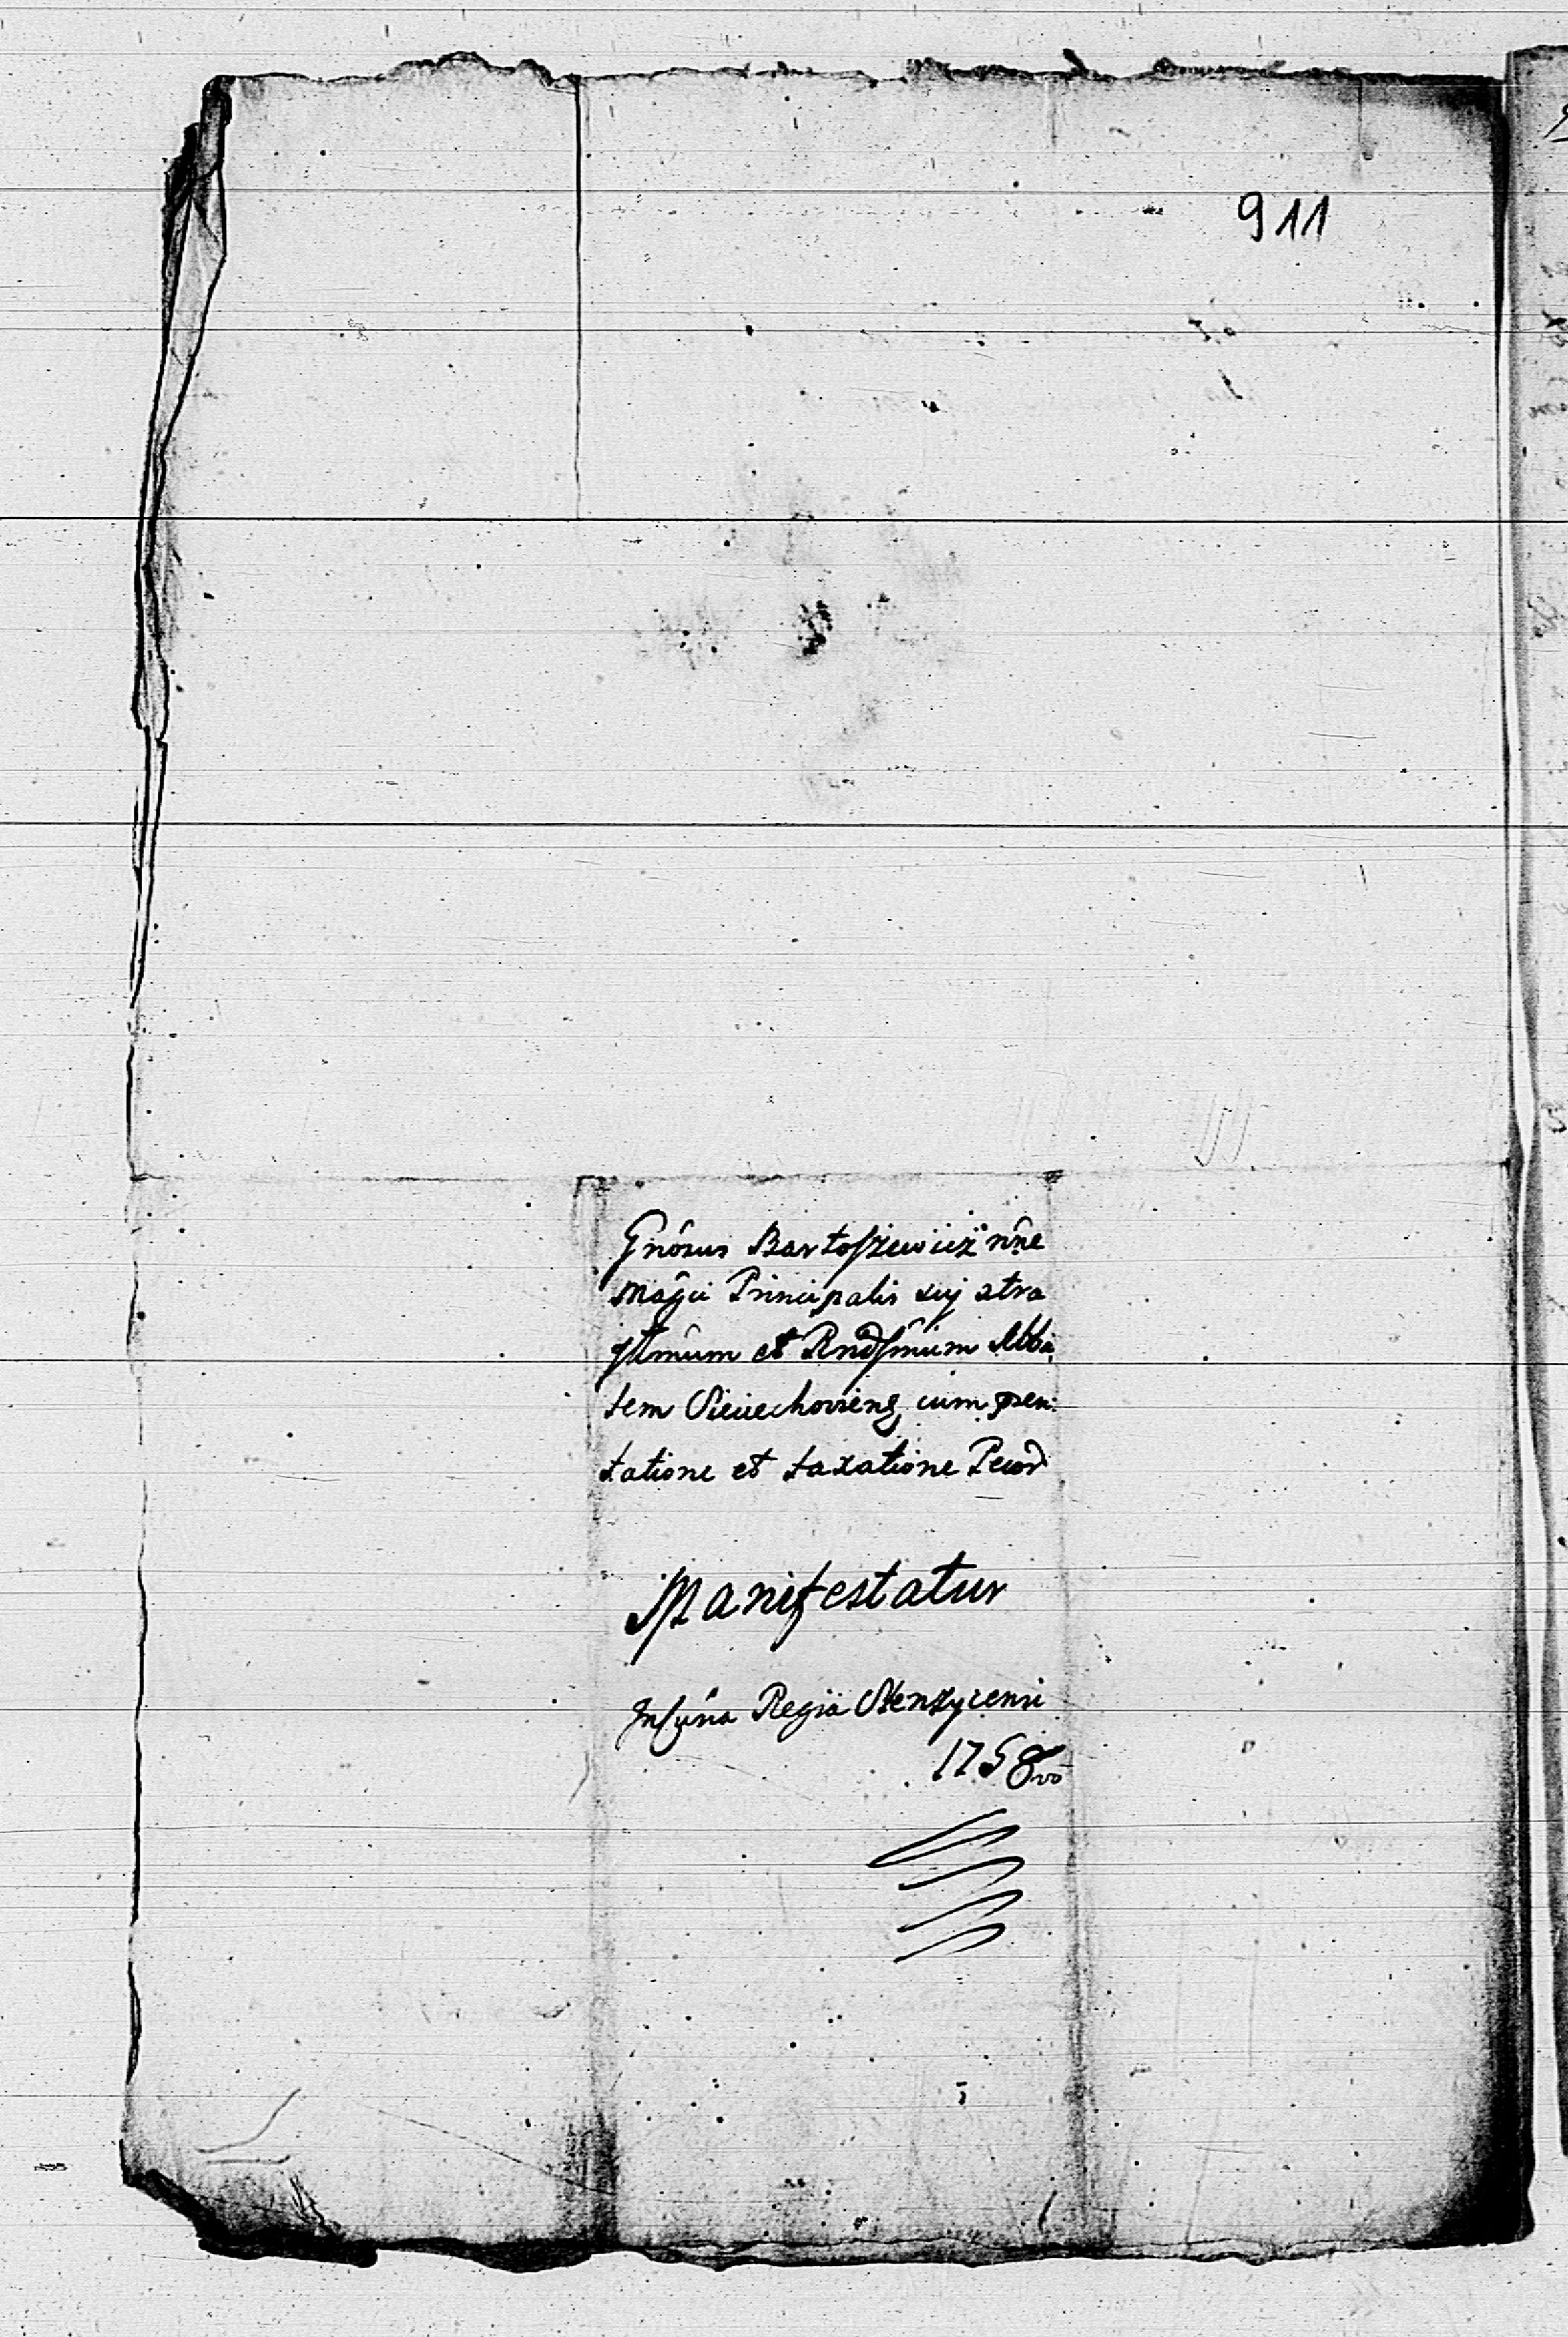 911
Gnôsus Bartoszewicz nn̂e
Magci Principalis suj ctra
Jllmûm et Rndssmûm Abba
tem Sieciechoviens, cum præsen
tatione et taxatione Pecor
Manifestatur
In Curia Regia Stenzycensi
1758vo